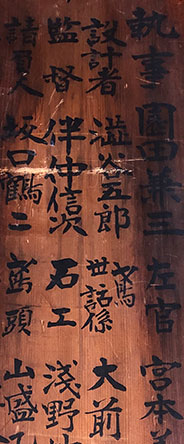 執事 園田兼三 左官 宮本
設計者 澁谷五郎 鳶世話係 大前
監督 伴仲信次 石工 浅野
請負人 坂口鶴二 鳶頭 山盛